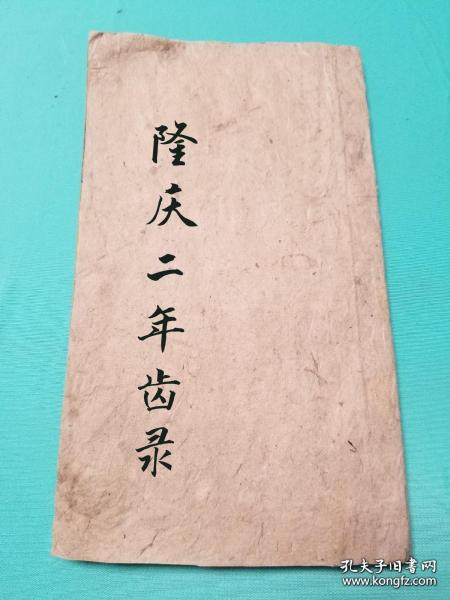 隆庆二年齿录
孔夫子旧书网
www.kongfz.com